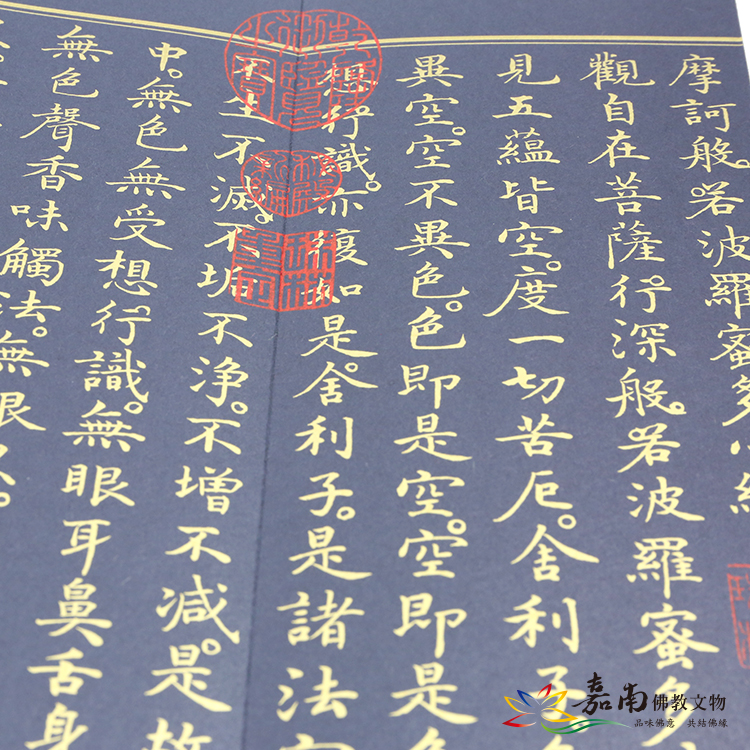 摩訶般。若波羅蜜多心經
觀自在菩薩。行深般。若波羅蜜多
見五蘊皆空。度一切苦厄。舍利子
異空。空不異色。色即是空。空即是色
想。行識。亦復如是。舍利子。是諸法空
不生不滅。不垢不淨。不增不減。是故
中。無色無受想。行識。無眼耳鼻舌身
無色聲香味觸法。無眼
嘉南佛教文物
品味佛意 共結佛緣